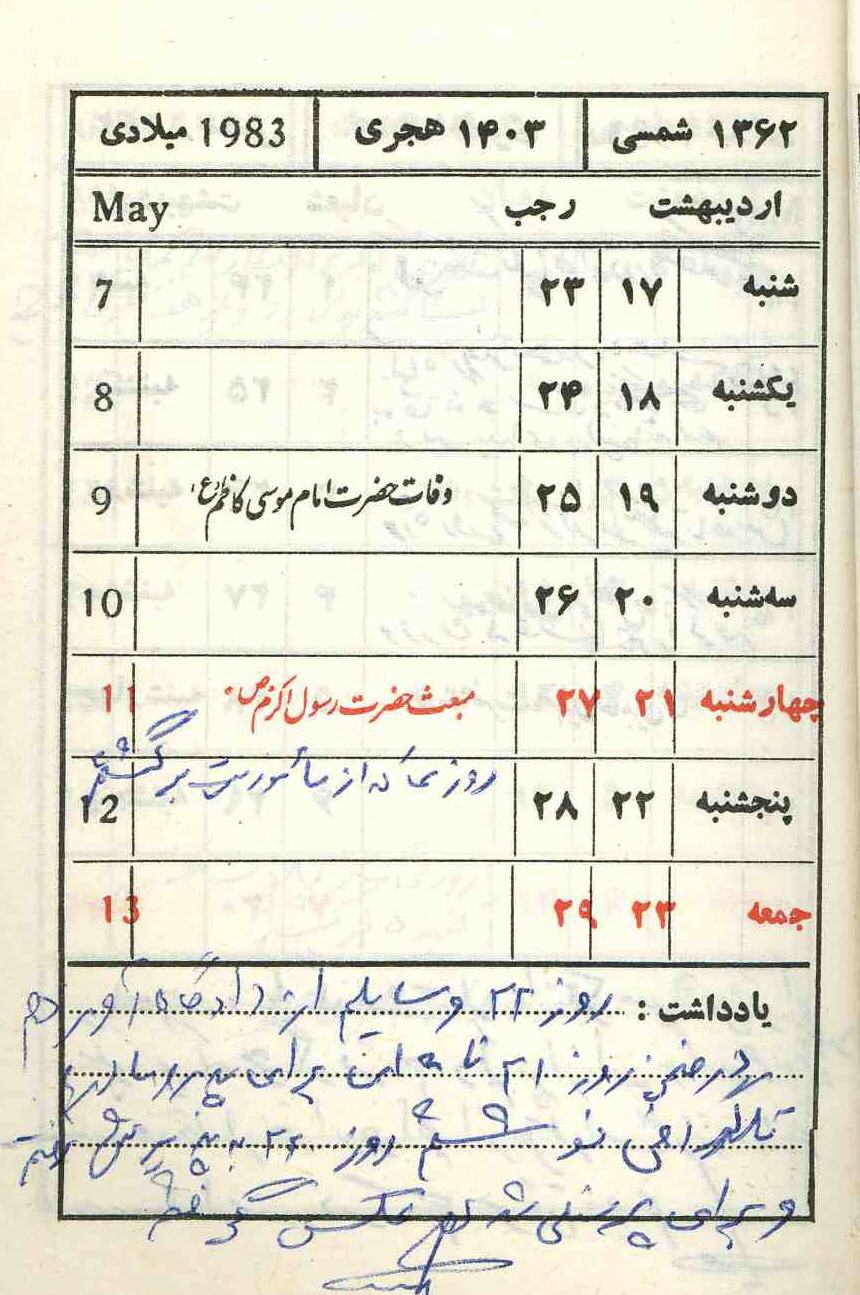 ۱۳۶۲ شمسی ۱۴۰۳ هجری 1983 میلادی
اردیبهشت رجب May
شنبه ۱۷ ۲۳ 7
یکشنبه ۱۸ ۲۴ 8
دوشنبه ۱۹ ۲۵ وفات حضرت امام موسی کاظم (ع) 9
سه‌شنبه ۲۰ ۲۶ 10
چهارشنبه ۲۱ ۲۷ مبعث حضرت رسول اکرم ص 11
پنجشنبه ۲۲ ۲۸ روز از مأموریت برگشتم 12
جمعه ۲۳ ۲۹ 13
یادداشت : روز ۲۲ وسایلم از دادگاه آوردم
در ضمن روز ۲۱ تا برای
تلگرافی روز رفتم
و برای پرسنلی شدن عکس گرفتم